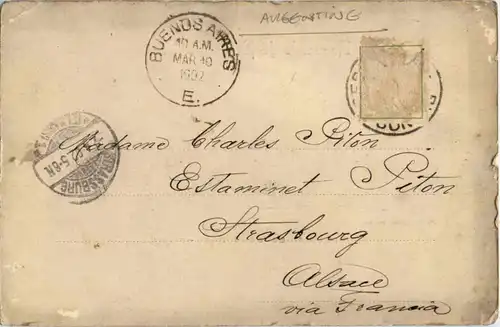 ARGENTINE
BUENOS AIRES
10 A.M.
MAR 10
1902
E.
STRASSBURG
5-6N.
Madame Charles Piton
Estaminet Piton
Strasbourg
Alsace
via Francia